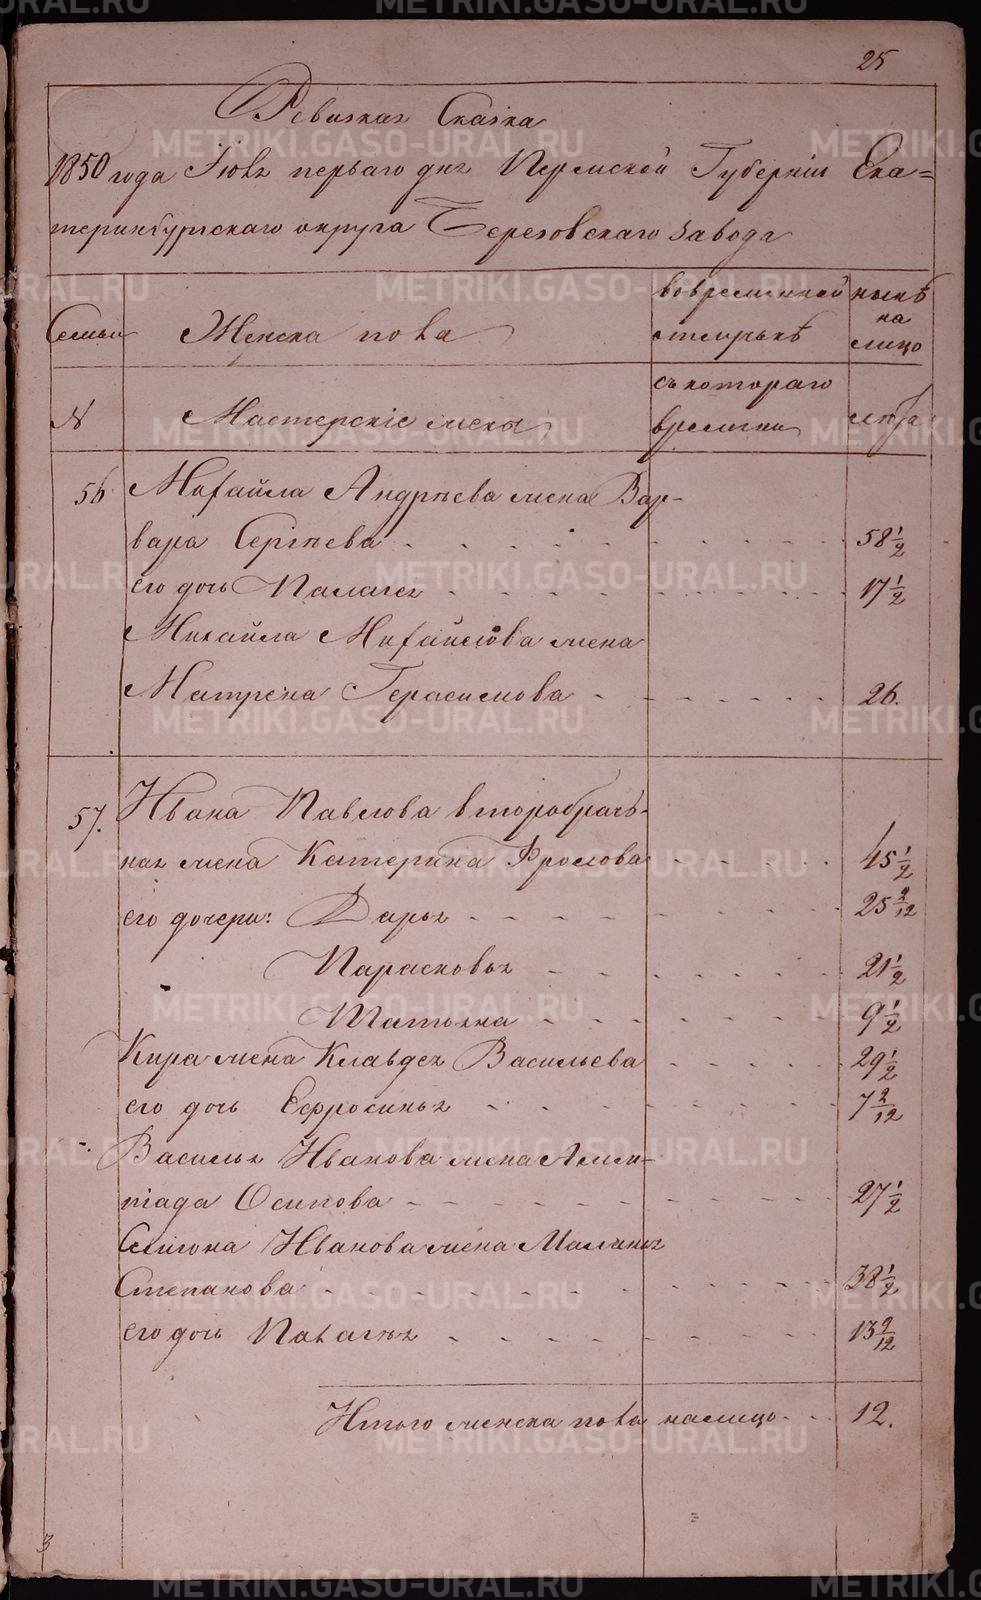 25
Ревизкая Сказка
1850 года Іюля перьваго дня Пермской Губерніи Ека=
теринбургскаго округа Березовскаго завода
Семьи
Женска пола
вовременной
отлучкѣ
нынѣ
на
лицо
№
Мастерскіе жены
съ котораго
времени
лѣта
56
Михайла Андрѣева жена Вар-
вара Сергѣева 58 1/2
его дочь Палагея 17 1/2
Михайла Михайлова жена
Матрена Герасимова 26.
57.
Ивана Павлова вторабрачь-
ная жена Катерина Фролова 45 1/2
его дочери: Дарья 25 2/12
Парасковья 21 1/2
Татьяна 9 1/2
Кира жена Клавдея Васильева 29 1/2
его дочь Ефросинья 7 2/12
Василья Иванова жена Алим-
піада Осипова 27 1/2
Семиона Иванова жена Маланья
Степанова 38 1/2
его дочь Палагѣя 13 2/12
Итого женска пола налицо 12.
3
METRIKI.GASO-URAL.RU